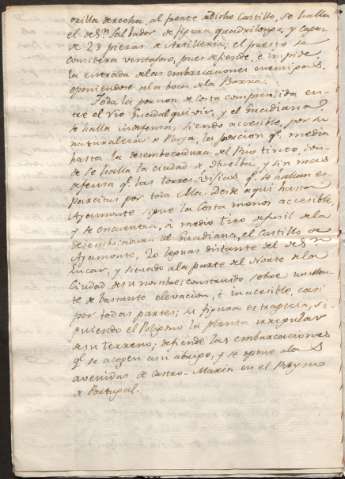 orilla derecha, al frente a dicho Castillo, se halla
el de Sn. Salbador de figura quadrilonga, y capaz
de 23 piezas de Artilleria; el puesto se
considera ventajoso, pues defiende, e impide
la entrada a las embarcaciones enemigas
oponiendose a la boca de la Barra.
Toda la porcion de Costa comprendida en-
tre el rio Guadalquivir, y el Guadiana,
se halla indefensa; siendo accesible, por su
naturaleza de Playa, la porcion qe. media
hasta la desembocadura del Rio tinto, don-
de se halla la ciudad de Huelba, y sin mas
defensa qe. las torres vigias qe. se hallan es-
parcidas por toda ella. Desde aqui hasta
Ayamonte sigue la Costa menos accesible,
y se encuentra, a medio tiro de fusil de la
desembocadura del Guadiana, el Castillo de
Ayamonte, 20 leguas distante del de Sn.
Lucar, y situado a la parte del Norte de la
Ciudad de su nombre; construido sobre un Mon-
te de bastante elevacion, e inaccesible, casi
por todas partes; su figura es trapecia, si-
guiendo el Poligono la planta irregular
de su terreno; defiende las embarcaciones
qe. se acogen a su abrigo, y se opone a las
avenidas de Castro-Marin en el Reyno
de Portugal.